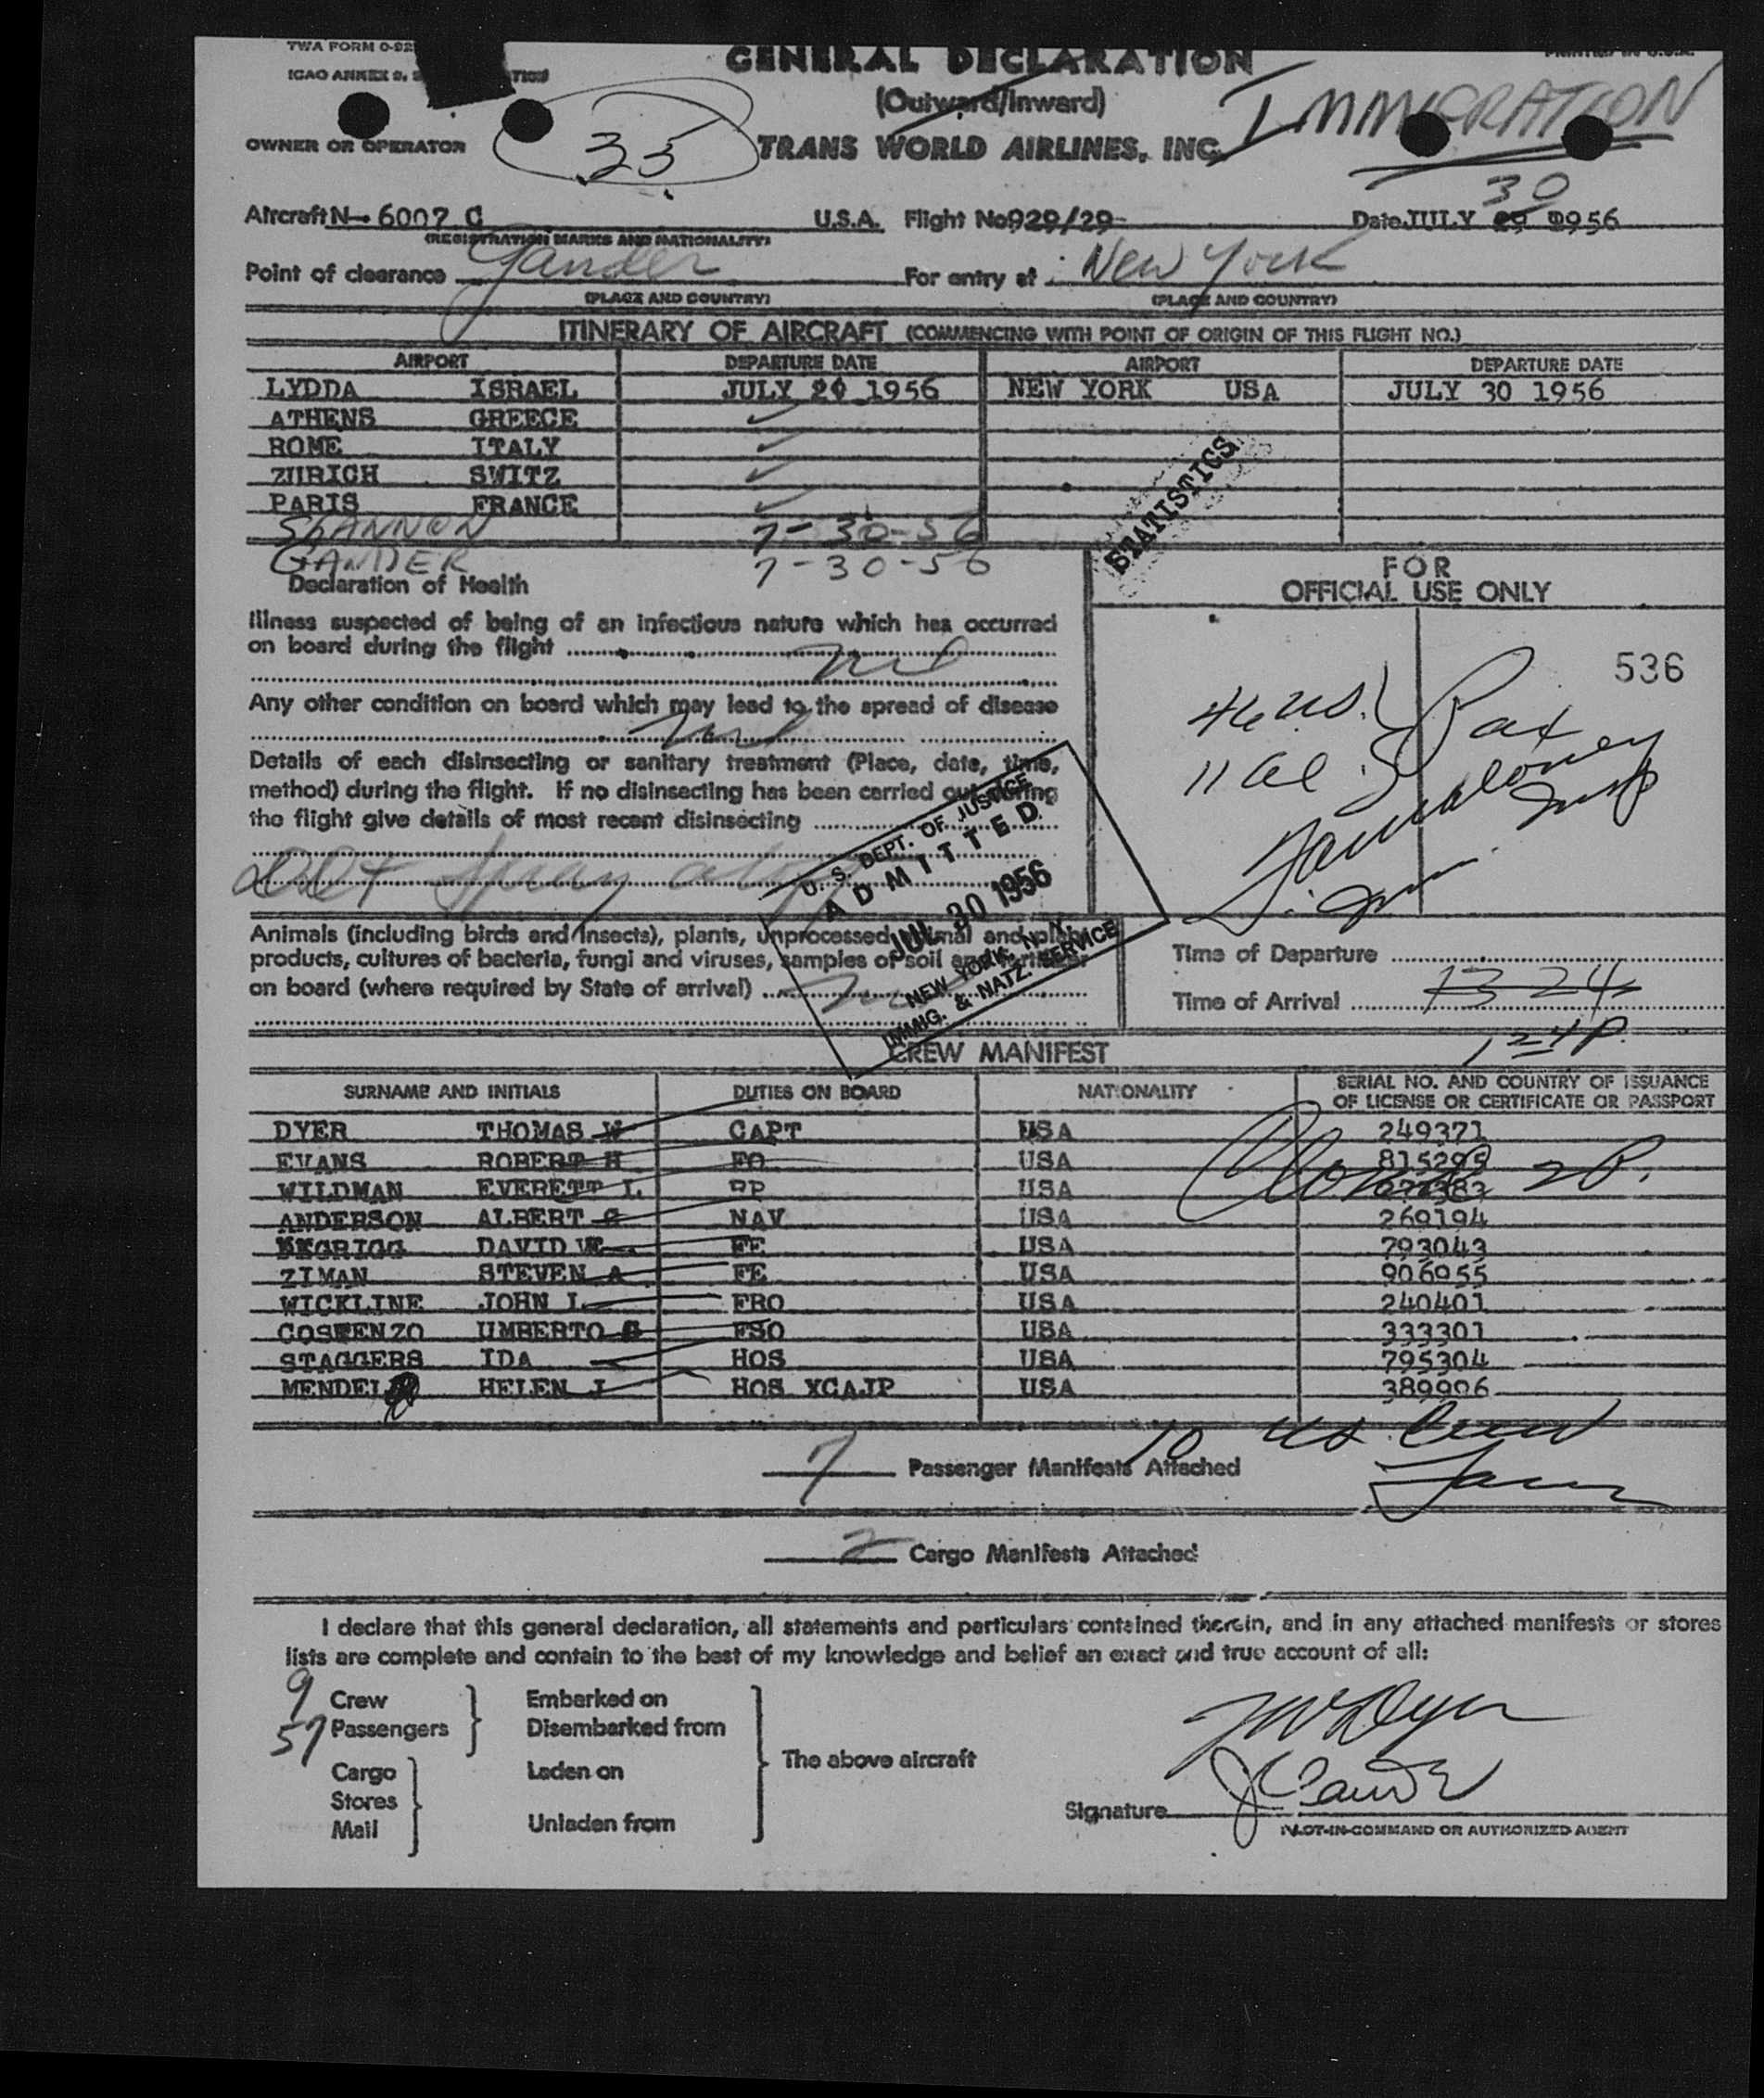 TWA FORM 0-92
GENERAL DECLARATION
ICAO ANNEX 9,
(Outward/Inward)
IMMIGRATION
OWNER OR OPERATOR
33
TRANS WORLD AIRLINES, INC.
30
Aircraft N- 6007 C U.S.A. Flight No. 929/29 Date JULY 29 1956
(REGISTRATION MARKS AND NATIONALITY)
Point of clearance Gander For entry at New York
(PLACE AND COUNTRY) (PLACE AND COUNTRY)
ITINERARY OF AIRCRAFT (COMMENCING WITH POINT OF ORIGIN OF THIS FLIGHT NO.)
AIRPORT DEPARTURE DATE AIRPORT DEPARTURE DATE
LYDDA ISRAEL JULY 29 1956 NEW YORK USA JULY 30 1956
ATHENS GREECE
ROME ITALY
ZURICH SWITZ
PARIS FRANCE
SHANNON 7-30-56
GANDER 7-30-56
STATISTICS
Declaration of Health
FOR
OFFICIAL USE ONLY
Illness suspected of being of an infectious nature which has occurred
on board during the flight nil
536
46 US. Pax
11 al
Any other condition on board which may lead to the spread of disease
nil
Details of each disinsecting or sanitary treatment (Place, date, time,
method) during the flight. If no disinsecting has been carried out during
the flight give details of most recent disinsecting
U. S. DEPT. OF JUSTICE
ADMITTED
JUL 30 1956
NEW YORK, N. Y.
IMMIG. & NATZ. SERVICE
Animals (including birds and insects), plants, unprocessed animal and plant
products, cultures of bacteria, fungi and viruses, samples of soil and
on board (where required by State of arrival)
Time of Departure
Time of Arrival 13 24
1 24 P.
CREW MANIFEST
SURNAME AND INITIALS DUTIES ON BOARD NATIONALITY SERIAL NO. AND COUNTRY OF ISSUANCE
OF LICENSE OR CERTIFICATE OR PASSPORT
DYER THOMAS W CAPT USA 249371
EVANS ROBERT H FO USA 815295
WILDMAN EVERETT L RP USA
ANDERSON ALBERT G NAV USA 269194
GRIGG DAVID W FE USA 793043
ZIMAN STEVEN A FE USA 906955
WICKLINE JOHN L FRO USA 240401
COSTENZO UMBERTO G FSO USA 333301
STAGGERS IDA HOS USA 795304
MENDEL HELEN J HOS XCAJP USA 389906
10 US Crew
7 Passenger Manifests Attached
2 Cargo Manifests Attached
I declare that this general declaration, all statements and particulars contained therein, and in any attached manifests or stores
lists are complete and contain to the best of my knowledge and belief an exact and true account of all:
9 Crew Embarked on
57 Passengers Disembarked from
The above aircraft
Cargo Laden on
Stores
Mail Unladen from
TW Dyer
Signature
PILOT-IN-COMMAND OR AUTHORIZED AGENT